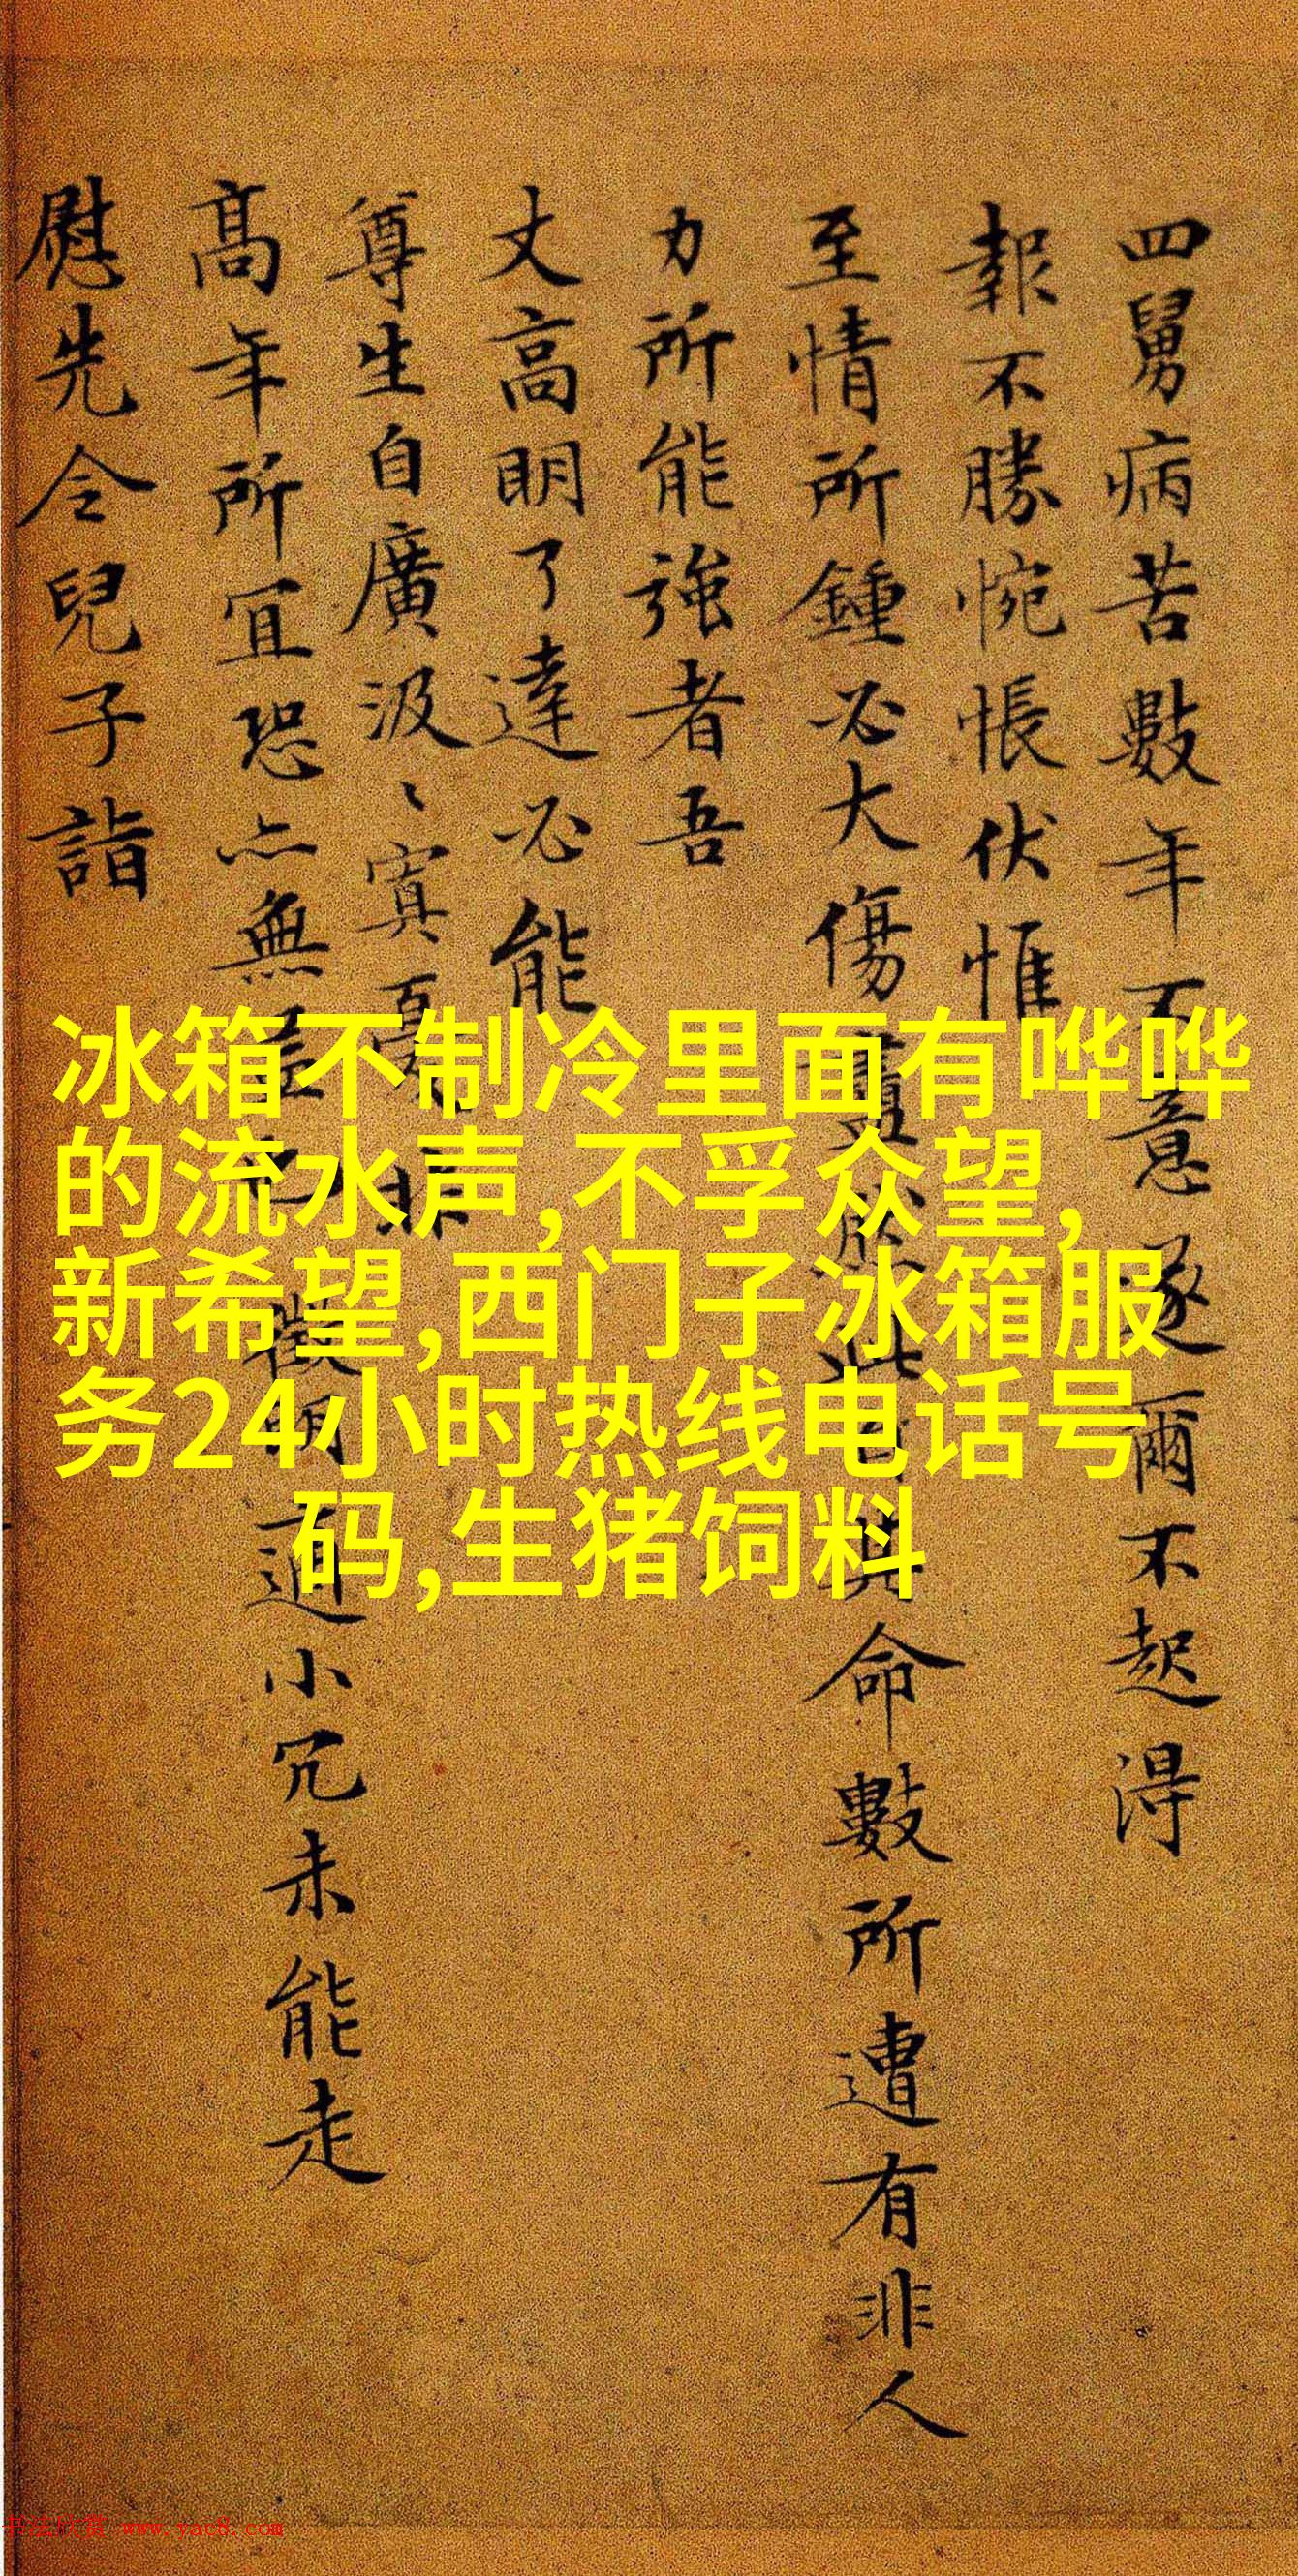 四舅病苦數年不意遂爾不起得
報不勝惋悵伏惟
至情所鍾必大傷
命數所遭有非人
力所能強者吾
丈高明了達必能
尊生自廣汲汲寘
高年所宜恐亦無
小冗未能走
慰先令兒子詣
冰箱不制冷里面有哗哗
的流水声,不孚众望,
新希望,西门子冰箱服
务24小时热线电话号
码,生猪饲料
书法欣赏 www.yac8.com